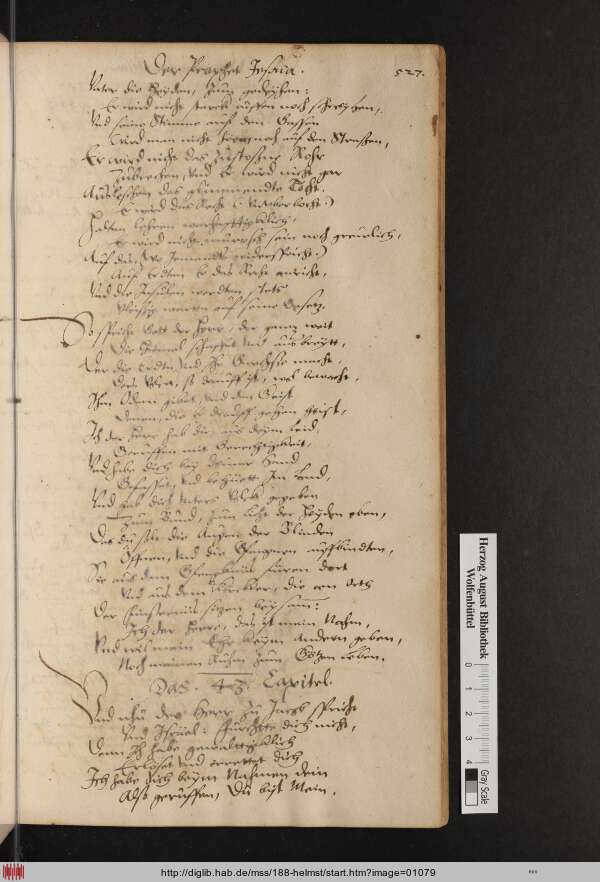 Der Prophet Jesaia. 527.
Unter die Heyden,
Er wird nicht noch schreyen,
Und seine Stimme auf den Gassen
Wird man nicht hören noch auf den Strassen,
Er wird nicht das Zustossene Rohr
Zubrechen, Und Er wird nicht gar
Ausleschen das glimmendte Tocht.
Er wird das Recht
Halten lehren warhafftigklich,
Er wird nicht mürrisch sein noch greulich,
Auf das,
Auf Erdten Er das Recht anricht,
Und die Insulen werdten stets
warten auf seine Gesetz.
So spricht Gott der Herr, der gantz weit
Die Himmel schaffet Und ausbreytt,
Der die Erdtn, Und Ihr Gewechse macht,
Dem Volck, so drauff ist,
Ihm Odem gibet, Und den Geist
Denen, die
Ich der Herr hab dir
Geruffen mit Gerechtigkeit,
Und habe dich bey deiner Hand
Gefasset, Und behuett Im Land,
Und hab dich Unters Volck gegeben
Zum Bund, Zum Licht der Heyden eben,
Das du solst die Augen der Blinden
Öffnen, Und die Gfangnen auffbindten,
Sie aus dem Gfengknus füren dort
Und aus dem Kercker, die am Orth
Der Finsternus sitzen beysam:
Ich der Herr, das ist mein Nahm,
Und wil mein Ehr keym andern geben,
Noch meinen Ruhm Zum Götzen eben.
Das. 43. Capitel.
Und nhu der Herr Zu Jacob spricht
Und Israel: Fürchtte dich nicht,
Denn Ich habe gewalttigklich
Erlöset Und errettet dich
Ich habe dich beym Nahmen dein
Also geruffen, Du bist Mein.
Herzog August Bibliothek
Wolfenbüttel
0 1 2 3 4
Gray Scale
http://diglib.hab.de/mss/188-helmst/start.htm?image=01079